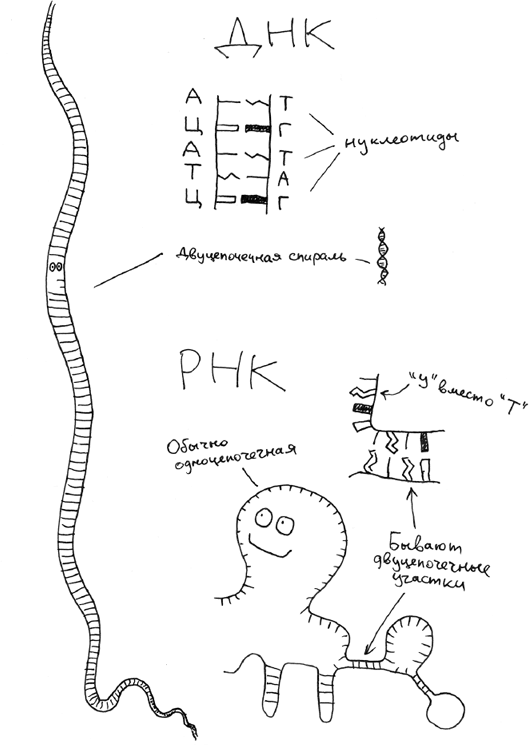 ДНК
А Т
Ц Г
А Т
Т А
Ц Г
нуклеотиды
Двуцепочечная спираль
РНК
"У" вместо "Т"
Обычно
одноцепочечная
Бывают
двуцепочечные
участки